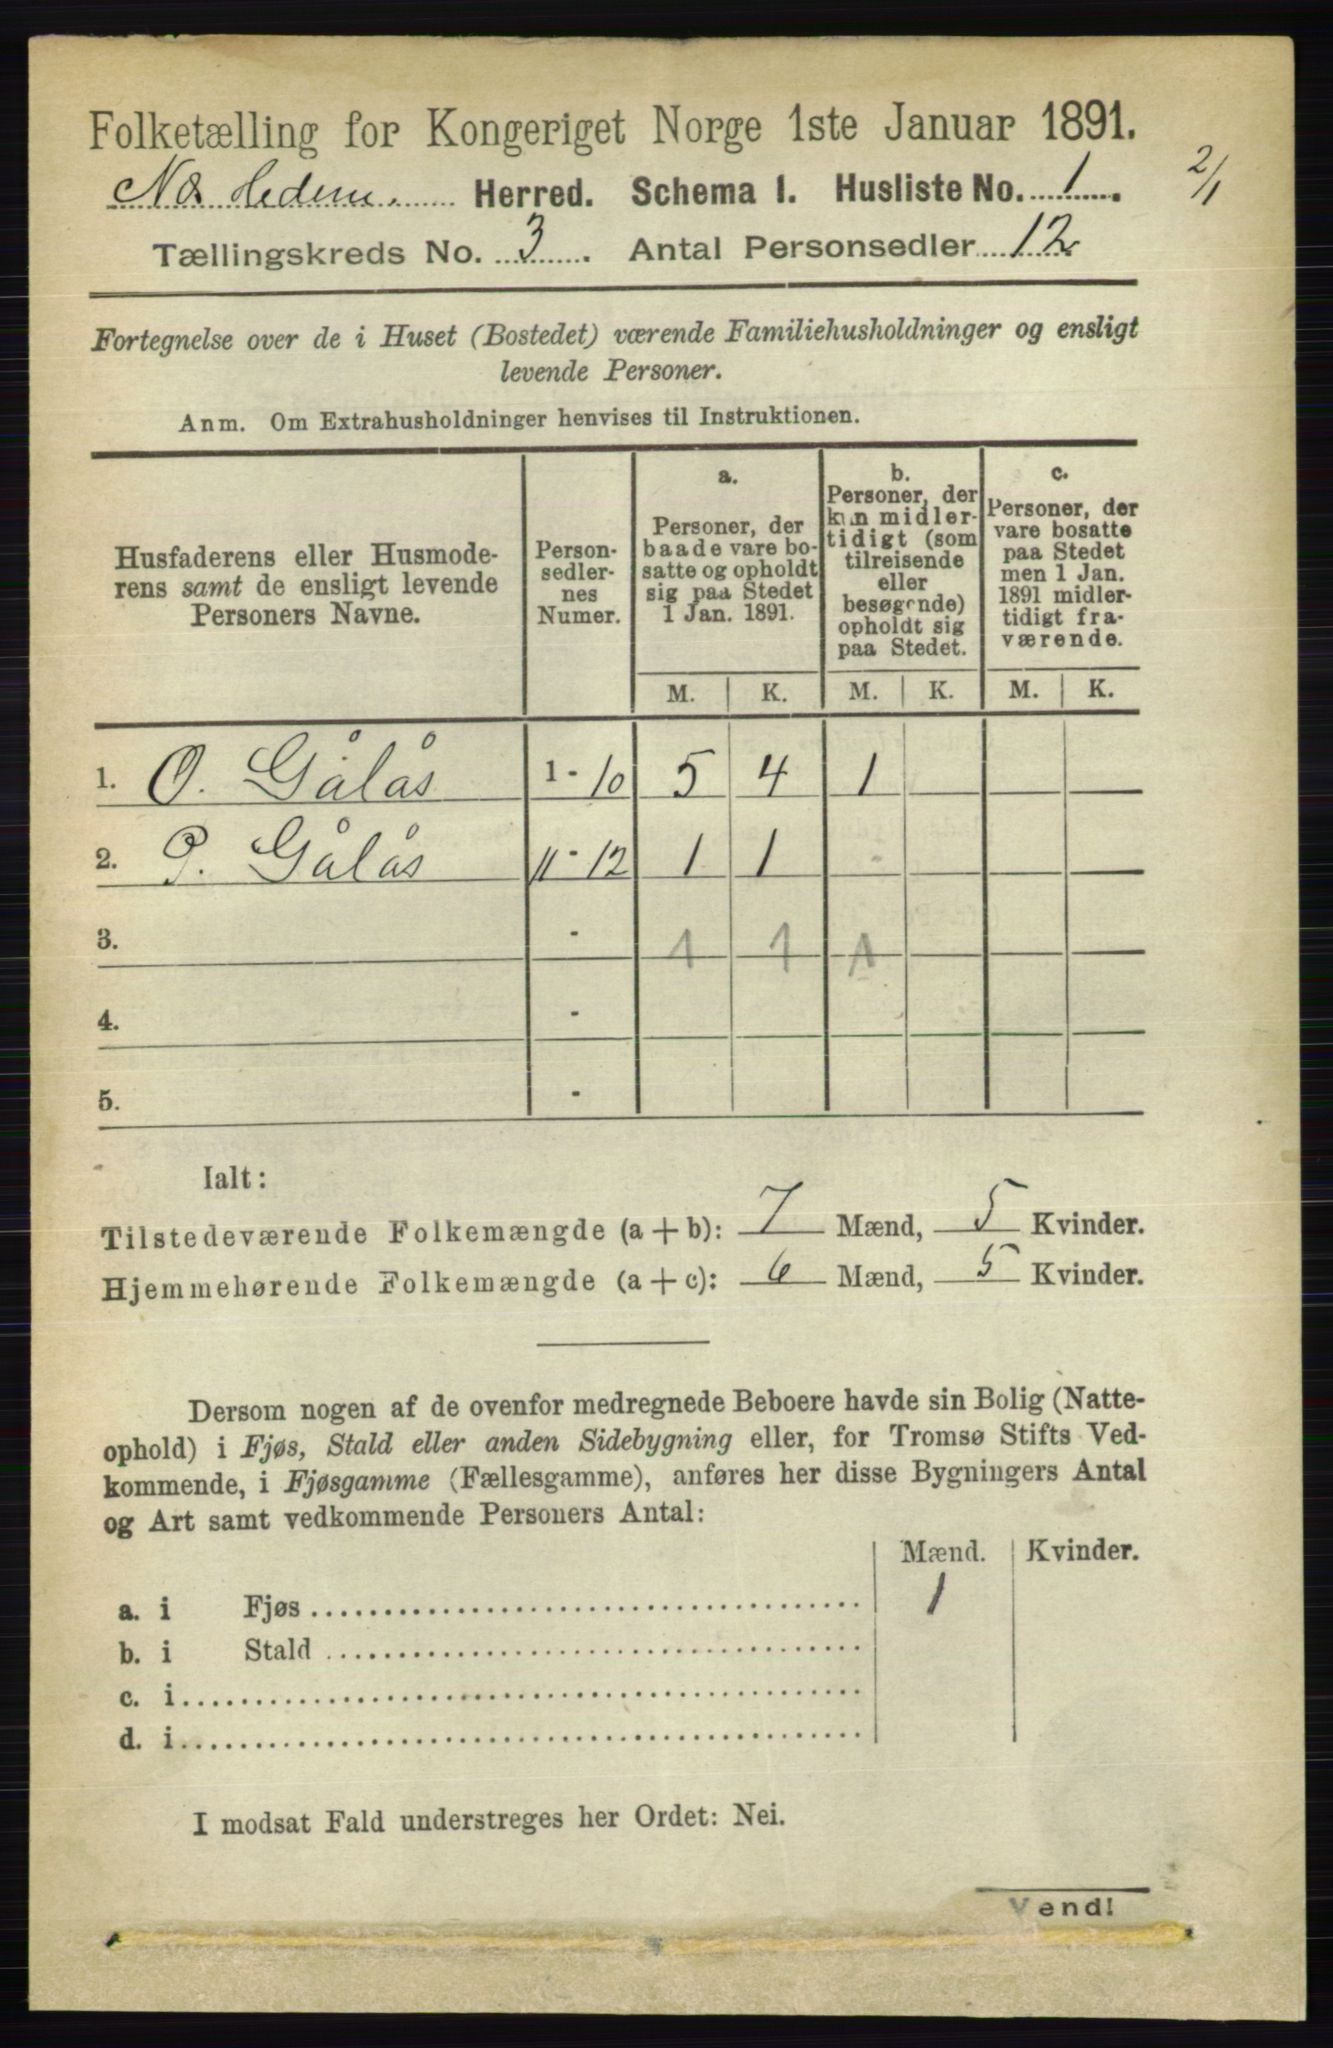 Folketælling for Kongeriget Norge 1ste Januar 1891.
Næs Hedem. Herred. Schema 1. Husliste No. 1.
2/1
Tællingskreds No. 3. Antal Personsedler 12
Fortegnelse over de i Huset (Bostedet) værende Familiehusholdninger og ensligt
levende Personer.
Anm. Om Extrahusholdninger henvises til Instruktionen.
Husfaderens eller Husmode-
rens samt de ensligt levende
Personers Navne.
Person-
sedler-
nes
Numer.
a.
Personer, der
baade vare bo-
satte og opholdt
sig paa Stedet
1 Jan. 1891.
b.
Personer, der
kun midler-
tidigt (som
tilreisende
eller
besøgende)
opholdt sig
paa Stedet.
c.
Personer, der
vare bosatte
paa Stedet
men 1 Jan.
1891 midler-
tidigt fra-
værende.
M. K. M. K. M. K.
1. O. Gålås 1 - 10 5 4 1
2. P. Gålås 11 - 12 1 1 -
3. - 1 1 1
4. -
5. -
Ialt:
Tilstedeværende Folkemængde (a + b): 7 Mænd, 5 Kvinder.
Hjemmehørende Folkemængde (a + c): 6 Mænd, 5 Kvinder.
Dersom nogen af de ovenfor medregnede Beboere havde sin Bolig (Natte-
ophold) i Fjøs, Stald eller anden Sidebygning eller, for Tromsø Stifts Ved-
kommende, i Fjøsgamme (Fællesgamme), anføres her disse Bygningers Antal
og Art samt vedkommende Personers Antal:
Mænd. Kvinder.
a. i Fjøs 1
b. i Stald
c. i
d. i
I modsat Fald understreges her Ordet: Nei.
Vend!